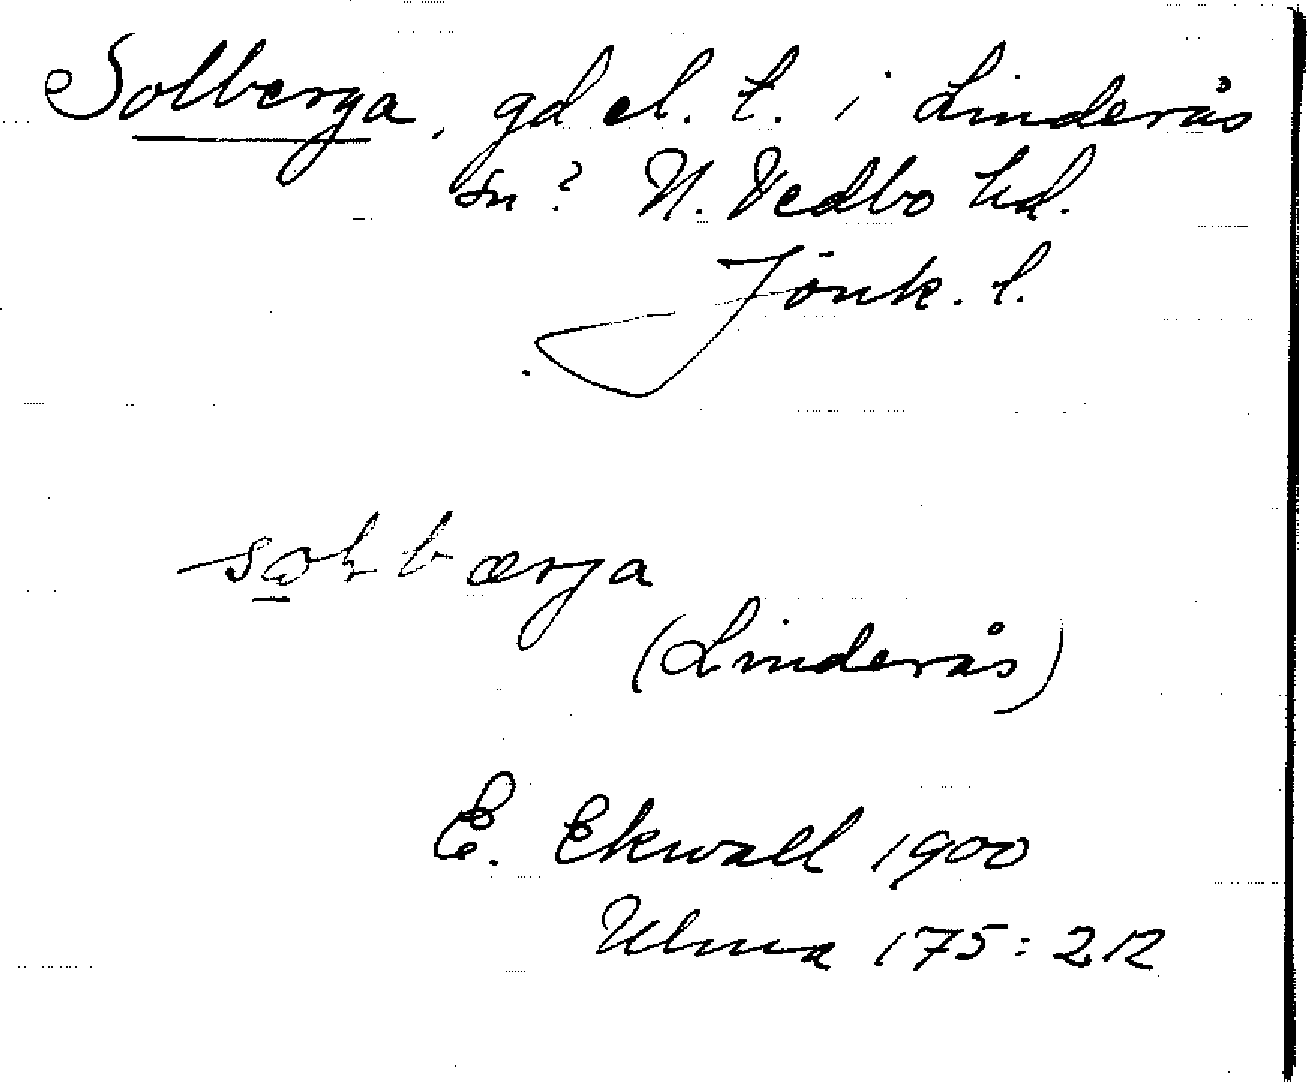 Solberga, gd el. t. i Linderås
sn? N. Vedbo hd.
Jönk. l.
bærja
(Linderås)
E. Ekwall 1900
Ulma 175:212